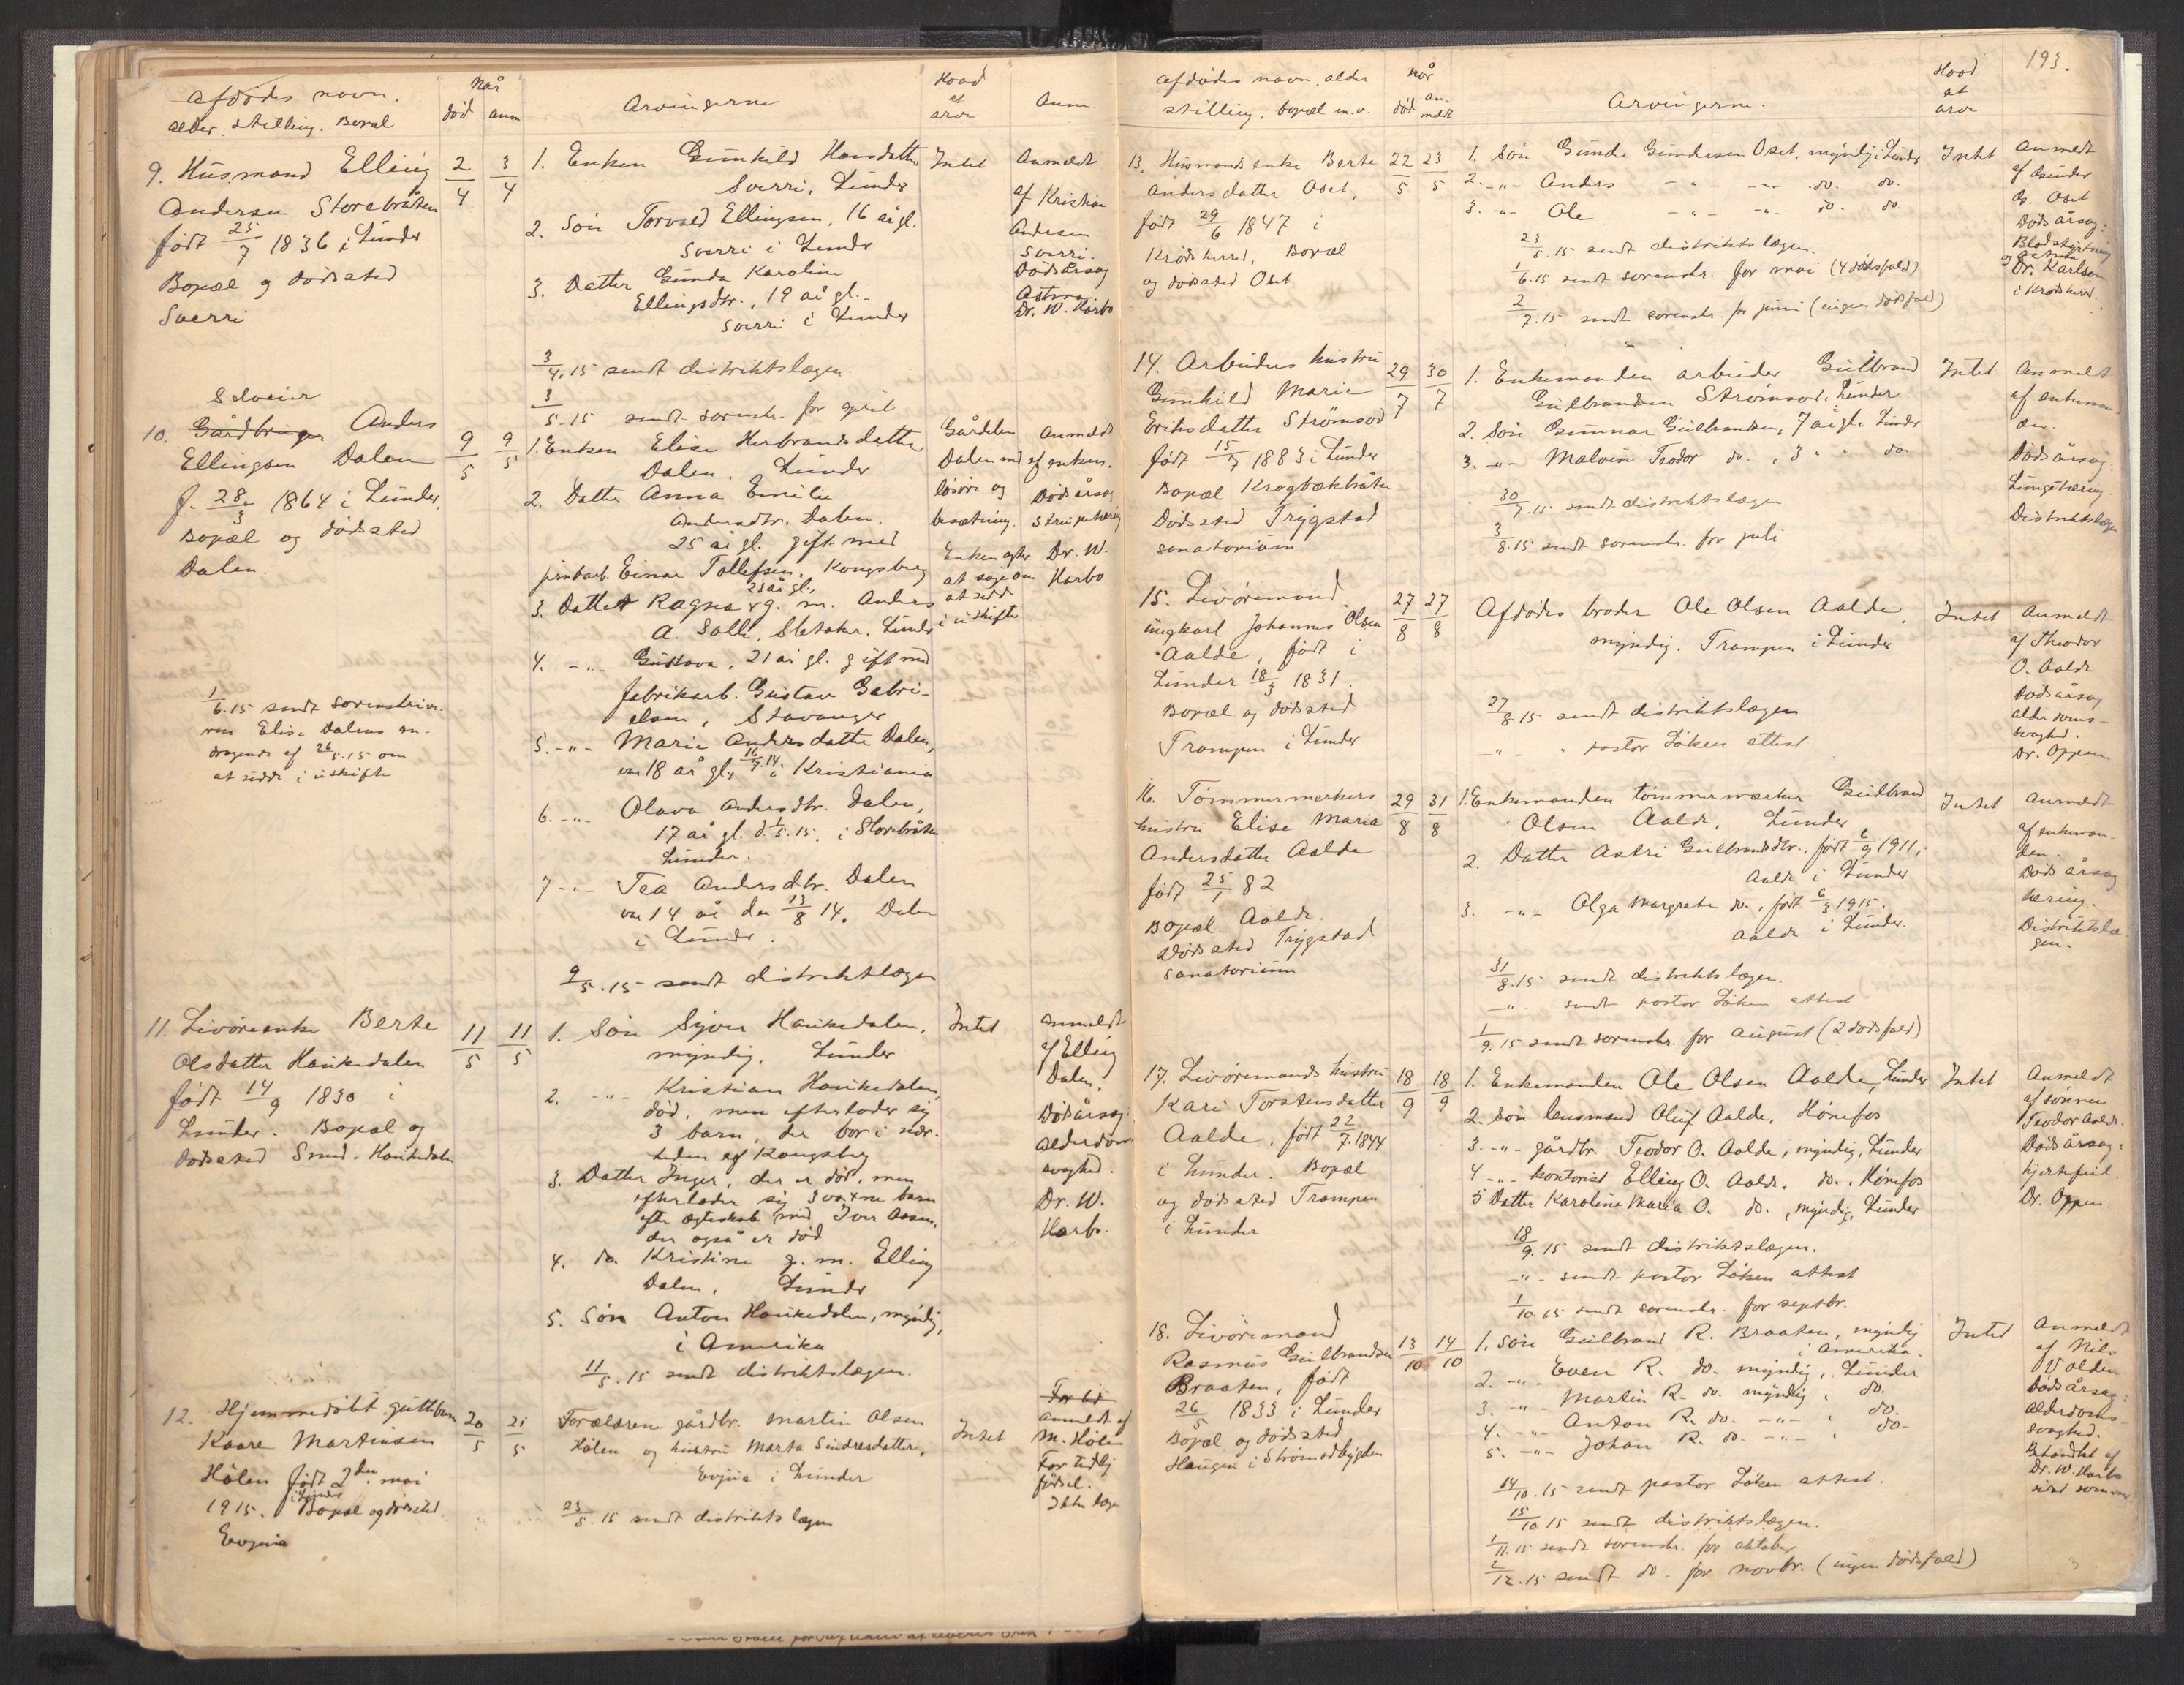 Afdødes navn,
alder, stilling. Bopæl
Når
død anm
Arvingerne
Hvad
at
arve
Anm.
9. Husmand Elling
Andersen Storebråten
født 25/7 1836 i Lunder
Bopæl og dødssted
Sverri
2/4 3/4
1. Enken Gunhild Hansdatter
Sverri, Lunder
2. Søn Torvald Ellingsen, 16 år gl.
Sverri i Lunder
3. Datter Gunda Karoline
Ellingsdtr., 19 år gl.
Sverri i Lunder
3/4.15 sendt distriktslægen.
3/5.15 sendt sorenskr. for april
Intet
Anmeldt
af Kristian
Andersen
Sverri.
Dødsårsag
Astma
Dr. W. Harbo
Selveier
10. Gårdbruger Anders
Ellingsen Dalen
f. 28/3 1864 i Lunder,
Bopæl og dødssted
Dalen
9/5 9/5
1. Enken Elise Herbrandsdatter
Dalen, Lunder
2. Datter Anna Emilie
Andersdtr. Dalen.
25 år gl. gift med
jernbarb. Einar Tollefsen, Kongsberg
3. Datter Ragna 23 år gl., g. m. Anders
A. Solli, Sletaker, Lunder
4. -"- Gustava, 21 år gl. gift med
fabrikarb. Gustav Gabri-
elsen, Stavanger
5. -"- Marie Andersdatter Dalen,
var 18 år gl. 16/7.14 i Kristiania
6. -"- Olava Andersdtr. Dalen,
17 år gl. d. 1/5.15, i Storebråten
Lunder.
7 -"- Tea Andersdtr. Dalen
var 14 år den 13/8 14. Dalen
i Lunder.
9/5.15 sendt distriktslægen
Gården
Dalen med
løsøre og
besætning.
Enken agter
at søge om
at sidde
i uskifte
Anmeldt
af enken.
Dødsårsag
Strupetæring
Dr. W.
Harbo
1/6.15 sendt sorenskrive-
ren Elise Dalens an-
dragende af 26/5.15 om
at sidde i uskifte
11. Livøreenke Berte
Olsdatter Haukedalen
født 14/9 1830 i
Lunder. Bopæl og
dødssted Haukedalen
11/5 11/5
1. Søn Syver Haukedalen,
myndig, Lunder
2. -"- Kristian Haukedalen,
død, men efterlader sig
3 barn, der bor i nær-
heden af Kongsberg
3. Datter Inger, der er død, men
efterlader sig 3 voxne barn
efter ægteskab med Iver Aasen,
der også er død
4. do. Kristine g. m. Elling
Dalen, Lunder
5. Søn Anton Haukedalen, myndig,
i Amerika
11/5.15 sendt distriktslægen.
Intet
Anmeldt
af Elling
Dalen.
Dødsårsag
alderdoms
svaghed.
Dr. W.
Harbo.
12. Hjemmedøbt guttebarn
Kaare Martinsen
Hølen født 2den mai
1915. i Lunder Bopæl og dødssted
Evjua
20/5 21/5
Forældrene gårdbr. Martin Olsen
Hølen og hustru Marta Sindresdatter,
Evjua i Lunder
23/5.15 sendt distriktslægen
Intet
For tid
anmeldt af
M. Hølen
For tidlig
fødsel.
Ikke læge
193.
Afdødes navn, alder
stilling, bopæl m.v.
Når
død an-
meldt
Arvingerne.
Hvad
at
arve
13. Husmandsenke Berte
Andersdatter Oset,
født 29/6 1847 i
Krødsherred, Bopæl
og dødssted Oset
22/5 23/5
1. Søn Gunder Gundersen Oset, myndig, Lunder
2. -"- Anders -"- -"- do. do.
3. -"- Ole -"- -"- do. do.
23/5.15 sendt distriktslægen.
1/6.15 sendt sorenskr. for mai (4 dødsfald)
2/7.15 sendt sorenskr. for juni (ingen dødsfald)
Intet
Anmeldt
af Gunder
G. Oset
Dødsårsag:
Blodstyrtning
Dr. Karlsen
i Krødsherred.
14. Arbeiders hustru
Gunhild Marie
Eriksdatter Strømsod
født 15/7 1883 i Lunder
Bopæl Krogbækbråten
Dødssted Trygstad
sanatorium
29/7 30/7
1. Enkemanden arbeider Gulbrand
Gulbrandsen Strømsod, Lunder
2. Søn Gunnar Gulbrandsen, 7 år gl. Lunder
3. -"- Malvin Teodor do., 3 " " do.
30/7.15 sendt distriktslægen
3/8.15 sendt sorenskr. for juli
Intet
Anmeldt
af enkeman-
den.
Dødsårsag:
Lungetæring.
Distriktslægen
15. Livøremand
ungkarl Johannes Olsen
Aalde, født i
Lunder 18/3 1831.
Bopæl og dødssted
Trampen i Lunder
27/8 27/8
Afdødes broder Ole Olsen Aalde,
myndig. Trampen i Lunder
27/8.15 sendt distriktslægen
-"- " pastor Løken attest
Intet
Anmeldt
af Theodor
O. Aalde
Dødsårsag
alderdoms-
svaghed.
Dr. Oppen
16. Tømmermerkers
hustru Elise Maria
Andersdatter Aalde
født 25/1 82
Bopæl Aalde.
Dødssted Trygstad
sanatorium
29/8 31/8
1. Enkemanden tømmermerker Gulbrand
Olsen Aalde, Lunder
2. Datter Astri Gulbrandsdtr., født 6/9 1911,
Aalde i Lunder
3. -"- Olga Margrete do., født 6/3 1915.
Aalde i Lunder.
31/8.15 sendt distriktslægen.
-"- sendt pastor Løken attest
1/9.15 sendt sorenskr. for august (2 dødsfald)
Intet
Anmeldt
af enkeman-
den.
Dødsårsag
tæring.
Distriktslæ-
gen.
17. Livøremands hustru
Kari Torstensdatter
Aalde, født 22/7.1844
i Lunder. Bopæl
og dødssted Trampen
i Lunder
18/9 18/9
1. Enkemanden Ole Olsen Aalde, Lunder
2. Søn lensmand Oluf Aalde, Hønefos
3. -"- gårdbr. Teodor O. Aalde, myndig, Lunder
4 -"- kontorist Elling O. Aalde. do., Hønefos
5 Datter Karoline Maria O. do., myndig, Lunder
18/9.15 sendt distriktslægen.
-"- sendt pastor Løken attest
1/10.15 sendt sorenskr. for septbr.
Intet
Anmeldt
af sønnen
Teodor Aalde.
Dødsårsag:
hjertefeil.
Dr. Oppen
18. Livøremand
Rasmus Gulbrandsen
Braaten, født
26/5 1833 i Lunder
Bopæl og dødssted
Haugen i Strømsodbygden
13/10 14/10
1. Søn Gulbrand R. Braaten, myndig
i Amerika.
2. -"- Even R. do. myndig, Lunder
3. -"- Martin R. do. myndig, do.
4. -"- Anton R. do. -"- , do.
5. -"- Johan R. do. -"- , do.
14/10.15 sendt pastor Løken attest.
15/10.15 sendt distriktslægen.
1/11.15 sendt sorenskr. for oktober
2/12.15 sendt do. for novbr. (ingen dødsfald)
Intet
Anmeldt
af Nils
Volden
Dødsårsag:
Alderdoms-
svaghed.
Behandlet af
Dr. W. Harbo
sidst sommer
3